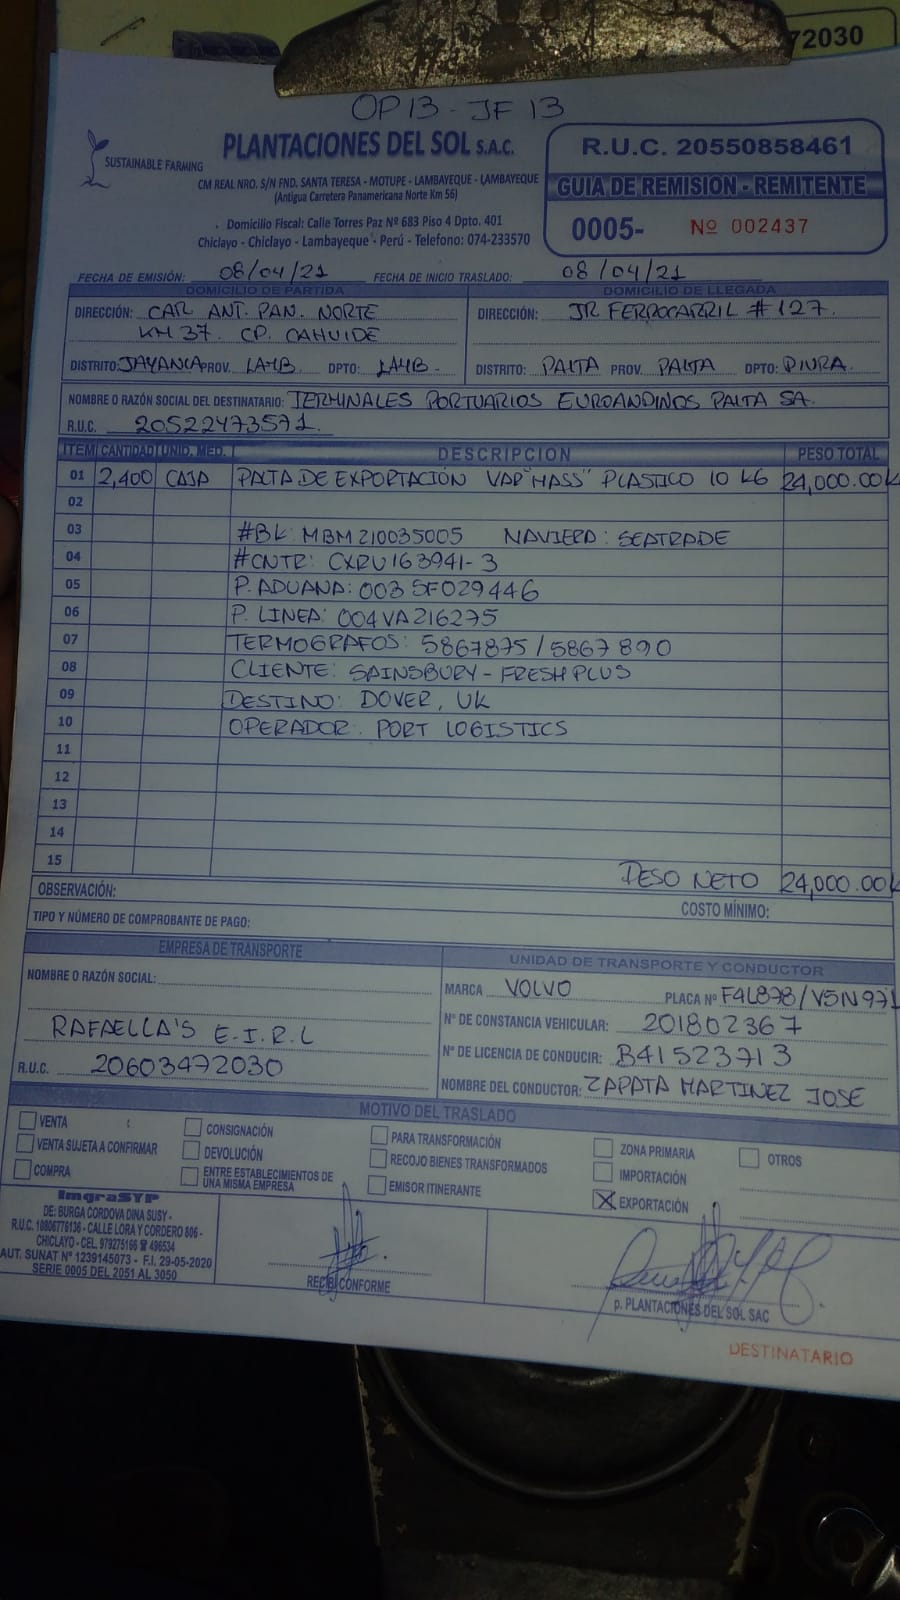 72030
OP 13 - JF 13
SUSTAINABLE FARMING
PLANTACIONES DEL SOL S.A.C.
CM REAL NRO. S/N FND. SANTA TERESA - MOTUPE - LAMBAYEQUE - LAMBAYEQUE
(Antigua Carretera Panamericana Norte Km 56)
Domicilio Fiscal: Calle Torres Paz Nº 683 Piso 4 Dpto. 401
Chiclayo - Chiclayo - Lambayeque - Perú - Telefono: 074-233570
R.U.C. 20550858461
GUIA DE REMISION - REMITENTE
0005- Nº 002437
FECHA DE EMISIÓN: 08/04/21 FECHA DE INICIO TRASLADO: 08/04/21
DOMICILIO DE PARTIDA DOMICILIO DE LLEGADA
DIRECCIÓN: CAR. ANT. PAN. NORTE DIRECCIÓN: JR FERROCARRIL # 127.
KM 37. CP. CAHUIDE
DISTRITO: JAYANCA PROV. LAMB. DPTO: LAMB. DISTRITO: PAITA PROV. PAITA DPTO: PIURA.
NOMBRE O RAZÓN SOCIAL DEL DESTINATARIO: TERMINALES PORTUARIOS EUROANDINOS PAITA SA.
R.U.C. 20522473571.
ITEM CANTIDAD UNID. MED. DESCRIPCION PESO TOTAL
01 2,400 CAJA PALTA DE EXPORTACIÓN VAR "HASS" PLASTICO 10 KG 24,000.00K
02
03 #BK: MBM210035005 NAVIERA: SEATRADE
04 #CNTR: CXRU163941-3
05 P. ADUANA: 003 SF029446
06 P. LINEA: 004VA216275
07 TERMOGRAFOS: 5867875 / 5867890
08 CLIENTE: SAINSBURY - FRESHPLUS
09 DESTINO: DOVER, UK
10 OPERADOR: PORT LOGISTICS
11
12
13
14
15 PESO NETO 24,000.00K
OBSERVACIÓN: COSTO MÍNIMO:
TIPO Y NÚMERO DE COMPROBANTE DE PAGO:
EMPRESA DE TRANSPORTE
NOMBRE O RAZÓN SOCIAL:
RAFAELLA'S E.I.R.L
R.U.C. 20603472030
UNIDAD DE TRANSPORTE Y CONDUCTOR
MARCA VOLVO PLACA Nº F4L878/V5N971
Nº DE CONSTANCIA VEHICULAR: 201802367
Nº DE LICENCIA DE CONDUCIR: B41523713
NOMBRE DEL CONDUCTOR: ZAPATA MARTINEZ JOSE
MOTIVO DEL TRASLADO
VENTA
VENTA SUJETA A CONFIRMAR
COMPRA
CONSIGNACIÓN
DEVOLUCIÓN
ENTRE ESTABLECIMIENTOS DE
UNA MISMA EMPRESA
PARA TRANSFORMACIÓN
RECOJO BIENES TRANSFORMADOS
EMISOR ITINERANTE
ZONA PRIMARIA
IMPORTACIÓN
EXPORTACIÓN
OTROS
ImgraSYP
DE: BURGA CORDOVA DINA SUSY -
R.U.C. 10806776136 - CALLE LORA Y CORDERO 806 -
CHICLAYO - CEL. 979275166 ☎ 496534
AUT. SUNAT Nº 1239145073 - F.I. 29-05-2020
SERIE 0005 DEL 2051 AL 3050
RECIBI CONFORME
p. PLANTACIONES DEL SOL SAC
DESTINATARIO